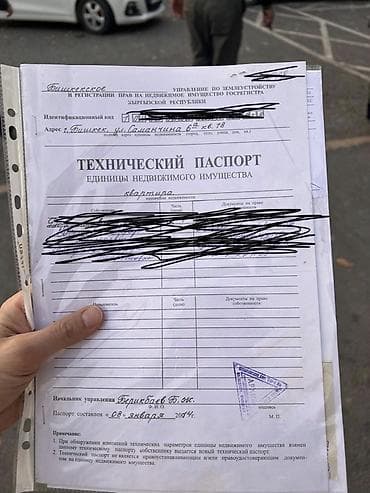 Бишкекское УПРАВЛЕНИЕ ПО ЗЕМЛЕУСТРОЙСТВУ
И РЕГИСТРАЦИИ ПРАВ НА НЕДВИЖИМОЕ ИМУЩЕСТВО ГОСРЕГИСТРА
КЫРГЫЗСКОЙ РЕСПУБЛИКИ
Идентификационный код
Адрес г. Бишкек, ул. Саманчина 6а кв. 18
ТЕХНИЧЕСКИЙ ПАСПОРТ
ЕДИНИЦЫ НЕДВИЖИМОГО ИМУЩЕСТВА
квартира
Часть Документы на право
Часть Документы на право
(доля) собственности
Начальник управления Берикбаев Б.Ж.
Ф.И.О. подпись
Паспорт составлен «08» января 2014г. М.П.
Примечание:
1. При обнаружении изменений технических параметров единицы недвижимого имущества взамен
данному техническому паспорту собственнику выдается новый технический паспорт.
2. Технический паспорт не является правоустанавливающим и/или правоудостоверяющим докумен-
том на единицу недвижимого имущества.